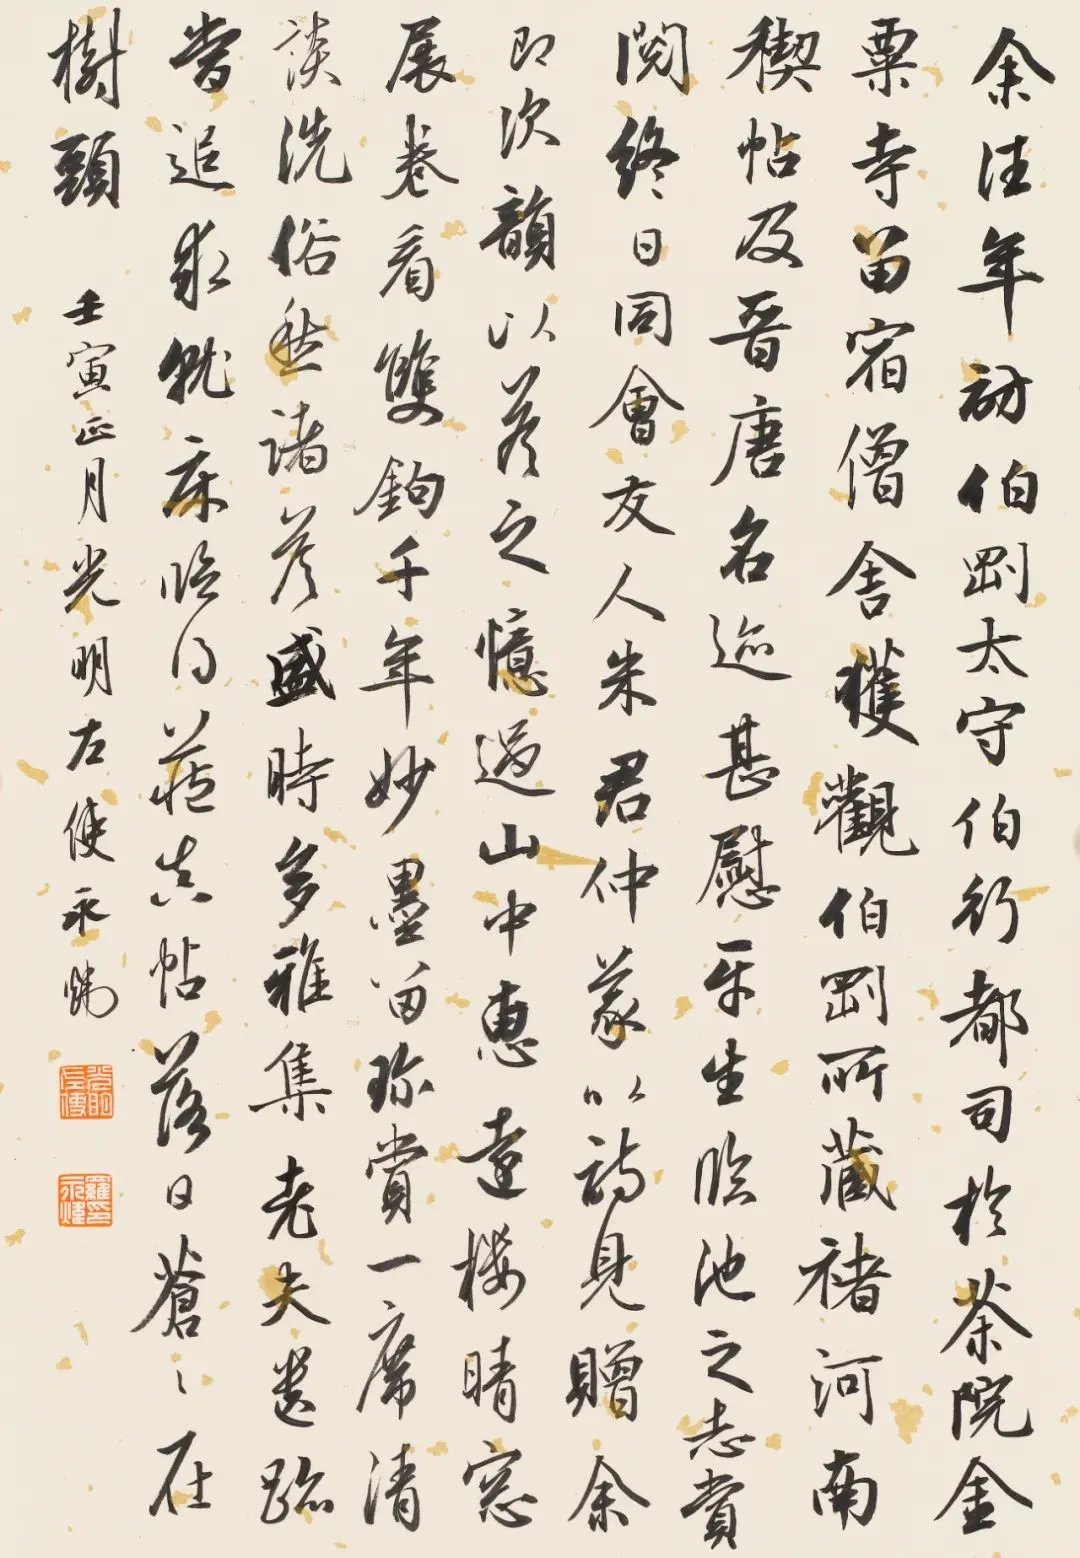 余往年訪伯剛太守伯行都司於茶院金
粟寺留宿僧舍獲觀伯剛所藏褚河南
禊帖及晉唐名迹甚慰平生臨池之志賞
閱終日同會友人朱君仲篆以詩見贈余
即次韻以答之憶過山中惠遠樓晴窓
展卷看雙鉤千年妙墨留珎賞一席清
談洗俗愁諸彥盛時多雅集老夫遺跡
嘗追求就床臨得藏真帖落日蒼々在
樹頭
壬寅正月光明左使永煒